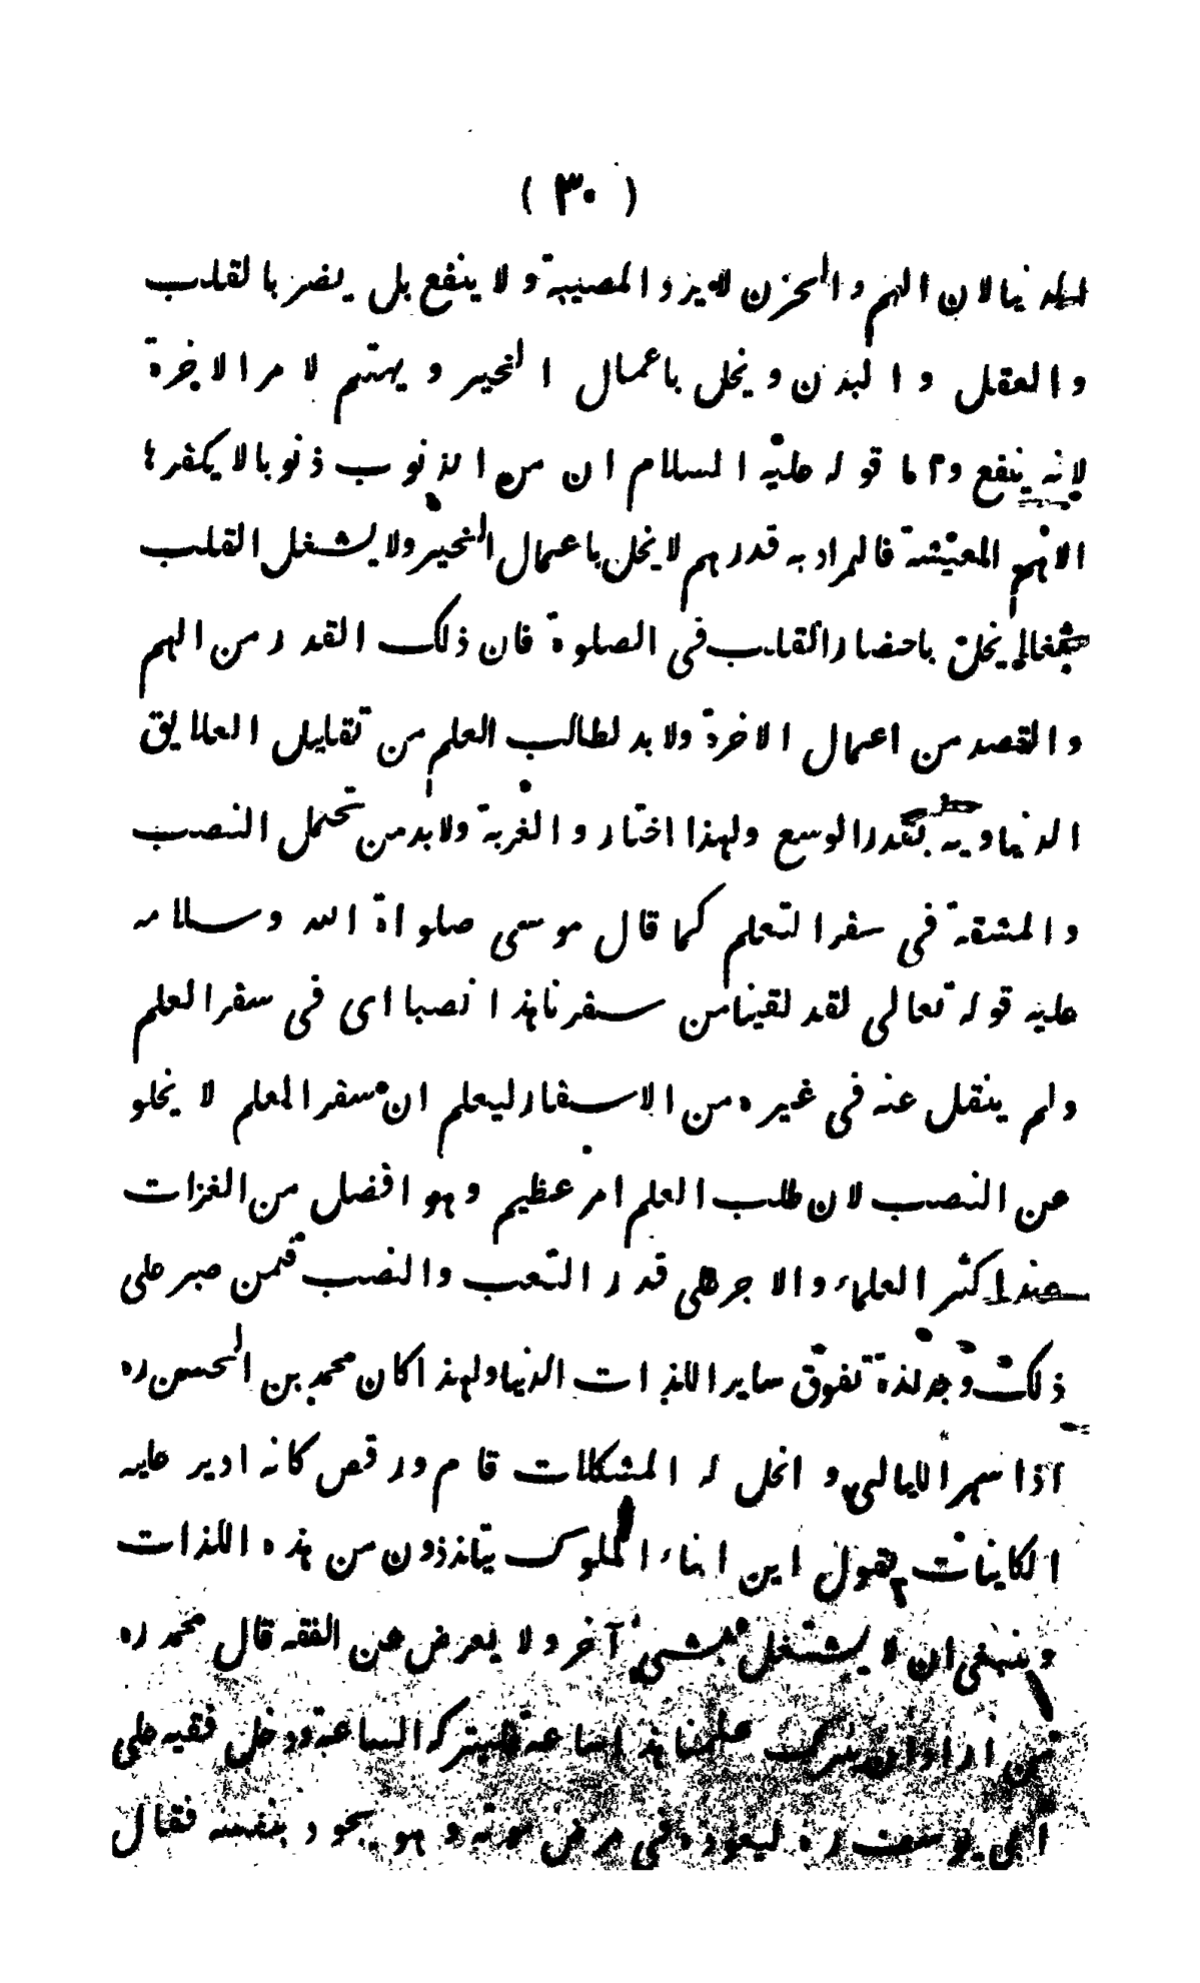 ( ٣٠ )
الدنيا لان الهم والحزن لا يرد المصيبة ولا ينفع بل يضر بالقلب
والعقل والبدن ويخل باعمال الخير ويهتم لامر الاخرة
لانه ينفع واما قوله عليه السلام ان من الذنوب ذنوبا لا يكفرها
الا هم المعيشة فالمراد به قدر هم لا يخل باعمال الخير ولا يشغل القلب
شغلا يخل باحضار القلب فى الصلوة فان ذلك القدر من الهم
والقصد من اعمال الاخرة ولا بد لطالب العلم من تقليل العلايق
الدنياوية بقدر الوسع ولهذا اختاروا الغربة ولا بد من تحمل النصب
والمشقة فى سفر التعلم كما قال موسى صلواة الله وسلامه
عليه قوله تعالى لقد لقينا من سفرنا هذا نصبا اى فى سفر العلم
ولم ينقل عنه فى غيره من الاسفار ليعلم ان سفر العلم لا يخلو
عن النصب لان طلب العلم امر عظيم وهو افضل من الغزات
عند اكثر العلماء والاجر على قدر التعب والنصب فمن صبر على
ذلك وجد لذة تفوق ساير اللذات الدنيا ولهذا كان محمد بن الحسن ره
اذا سهر الليالى وانحل له المشكلات قام ورقص كانه ادير عليه
الكاينات يقول اين ابناء الملوك يتلذذون من هذه اللذات
وينبغى ان لا يشتغل بشىء آخر ولا يعرض عن الفقه قال محمد ره
من اراد ان يترك علمنا هذا ساعة فليتركه الساعة ودخل فقيه على
ابى يوسف ره ليعوده فى مرض موته وهو يجود بنفسه فقال